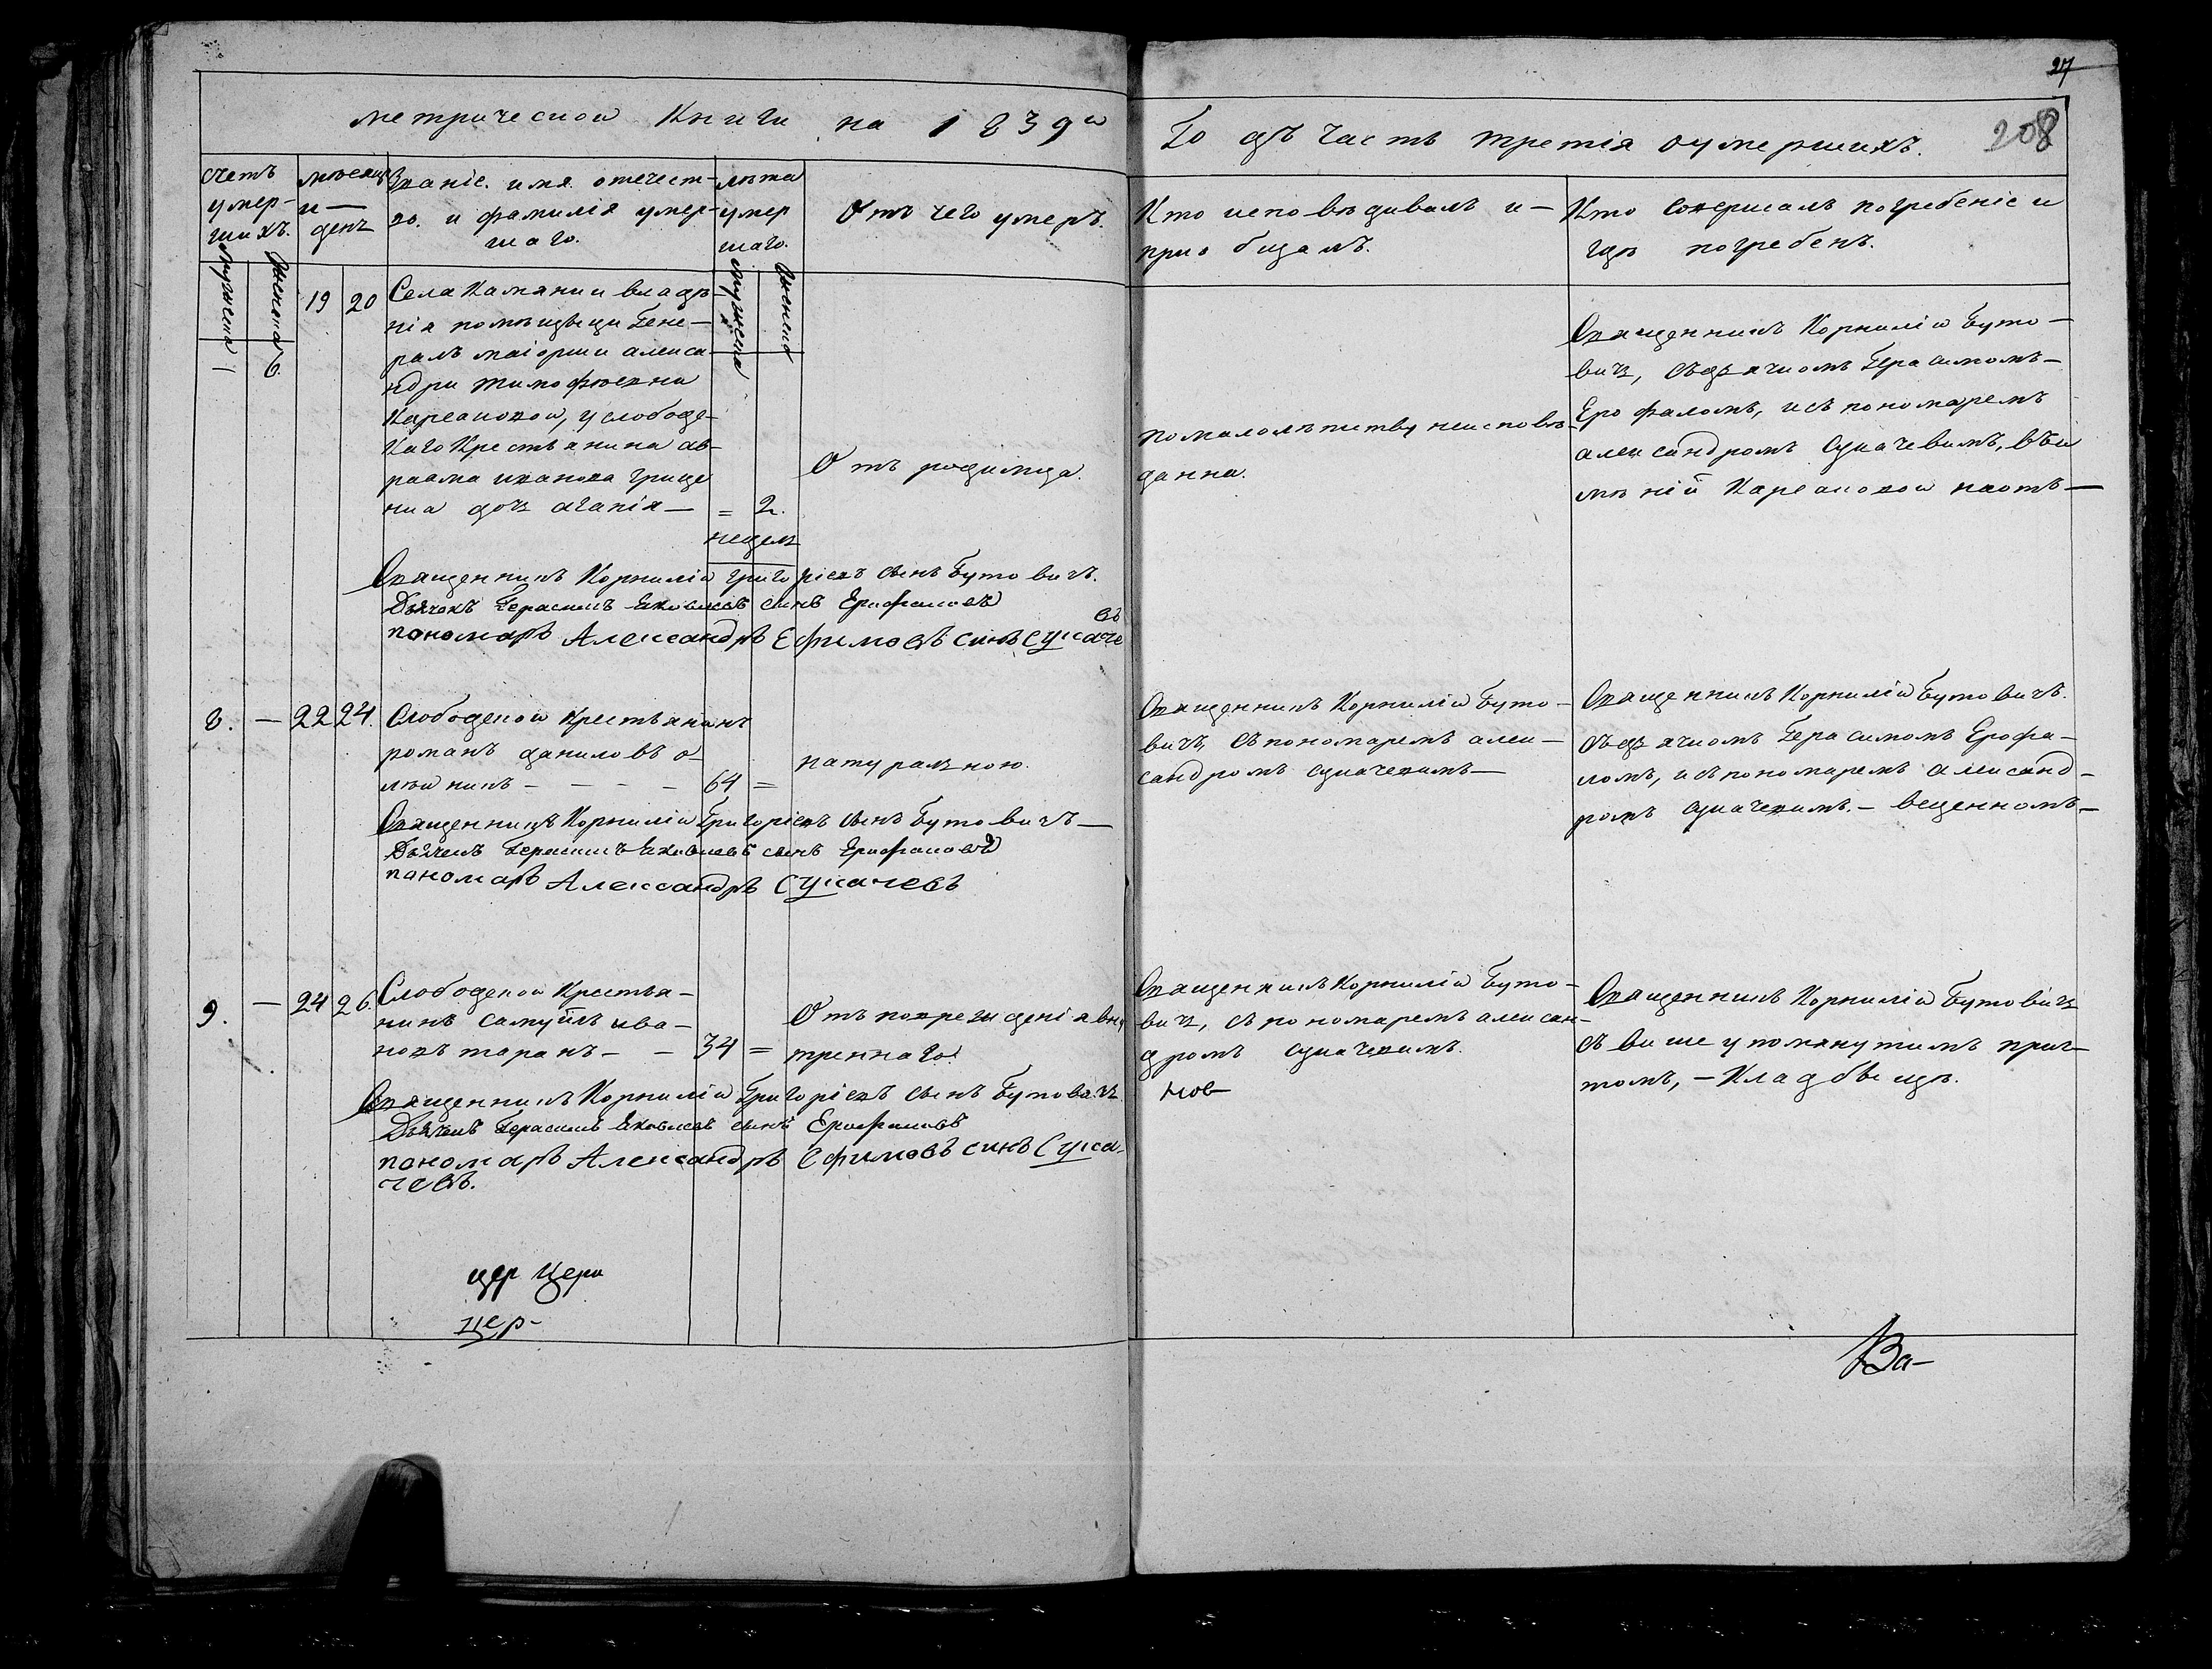 27
208
метрической Книги на 1839й
Годъ часть третія оумершихъ.
счетъ умер- шихъ.
мѣсяцъ и — день
Званіе. имя. отечест- во. и фамилія умер- шаго.
лѣта умер шаго.
Отъ чего умеръ.
Кто исповѣдивалъ и — приобщалъ.
Кто совершалъ погребеніе и гдѣ погребенъ.
мужеска
женска
мужеска
женска
— 6. 19 20
Села Камянки владѣ-
нія помѣщици Гене-
ралъ маіорши алекса-
ндри тимофѣевни
у слободс-
каго Крестянина ав-
раама иванова грице
нка дочь агапія —
= 2.
недель
Отъ родимца.
помалолѣтству неисповѣ-
данна.
Священникъ Корнилій Буто-
вичъ, съдячкомъ Герасимомъ —
Ерофаломъ, исъ пономаремъ
александромъ Сукачевимъ, въи
мѣній
Священникъ Корнилій Григоріевъ сынъ Бутовичъ.
Дьячокъ Герасимъ Яковлевъ сынъ Ерофаловъ
пономаръ Александръ Ефимовъ синъ Сукаче
въ
8. — 22 24.
Слободской Крестянинъ
романъ даниловъ о-
лѣйникъ - - - -
64 =
натуралною.
Священникъ Корнилій Буто-
вичъ, съпономаремъ алек-
сандромъ сукачевимъ —
Священникъ Корнилій Бутовичъ.
съдячкомъ Герасимомъ Ерофа-
ломъ, исъпономаремъ александ-
ромъ сукачевимъ. —
Священникъ Корнилій Григоріевъ сынъ Бутовичъ —
Дьячекъ Герасимъ Яковлевъ сынъ Ерофаловъ
паномаръ Александръ Сукачевъ
9. — 24 26.
Слободской Крестья-
нинъ самуйлъ ива-
новъ таранъ - -
34 =
Отъ поврежденія вну
тренного.
Священникъ Корнилій Буто-
вичъ, съ пономаремъ алексан-
дромъ сукачевимъ.
нов
Священникъ Корнилій Бутовичъ
съ вишеупомянутимъ прич-
томъ, — Кладбищѣ.
Священникъ Корнилій Григоріевъ сынъ Бутовичъ
Дьячекъ Герасимъ Яковлевъ сынъ Ерофаловъ
паномаръ Александръ Ефимовъ синъ Сука-
чевъ.
цер церк
цер-
Ва-